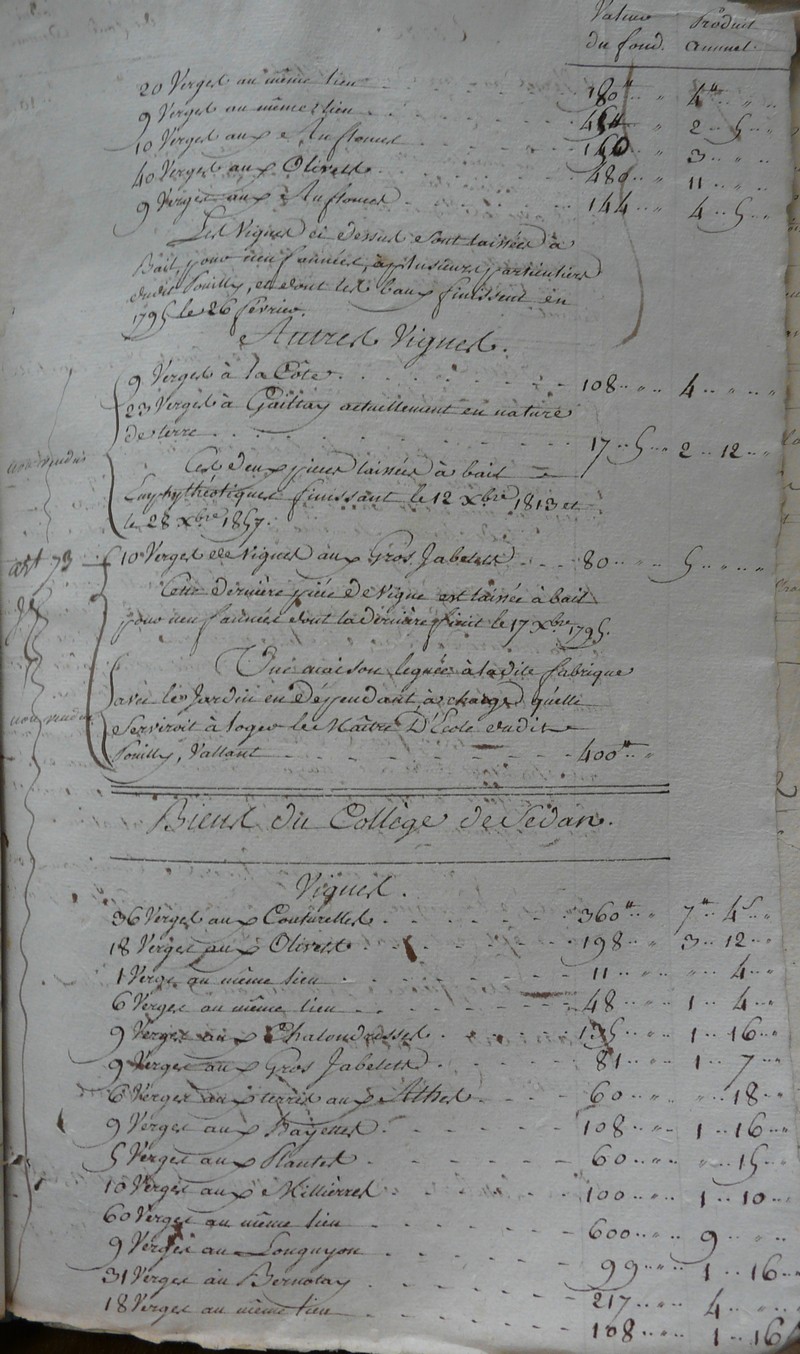 Valeur du fond. Produit annuel.
20 Verges au même lieu 180# .. " 4# .. " "
9 Verges au même lieu " 2 .. 5 .. "
10 Verges aux " 3 .. " ..
40 Verges aux Olivets 480 .. " 11 .. " ..
9 Verges aux 144 .. " 4 .. 5 .. "
Les Vignes ci dessus sont laissées à
Bail, pour neuf années, à plusieurs particuliers
dudit Pouilly, et dont les baux finissent en
1795 le 26 février.
Autres Vignes.
9 Verges à la Côte 108 .. " .. 4 .. " .. "
23 Verges à Gaillay actuellement en nature
de terre 17 .. 5 .. " 2 .. 12 .. "
non vendu
Ces deux pièces laissées à bail
Emphythéotiques finissant le 12 Xbre 1813 et
le 28 Xbre 1857.
art 73
10 Verges de Vignes aux Gros Jabelets 80 .. " .. 5 .. " .. "
Cette dernière pièce de Vigne est laissée à bail
pour neuf années dont la dernière finit le 17 Xbre 1795.
Une maison léguée à ladite fabrique
avec le Jardin en Dépendant, à charge qu'elle
non vendu
Serviroit à loger le Maître D'École dudit
Pouilly, Vallant 400# .. "
Biens du Collège de Sedan.
Vignes.
36 Verges aux Couturelles 360# .. " 7# .. 4s .. "
18 Verges aux Olivets 198 .. " 3 .. 12 .. "
1 Verge au même lieu 11 .. " .. " .. 4 .. "
6 Verges au même lieu 48 .. " 1 .. 4 .. "
9 Verges aux 135 .. " 1 .. 16 .. "
9 Verges aux Gros Jabelets 81 .. " 1 .. 7 .. "
6 Verges aux terres aux 60 .. " .. " " .. 18 .. "
9 Verges aux Bayettes 108 .. " 1 .. 16 .. "
5 Verges aux Plantes 60 .. " .. " .. 15 .. "
10 Verges aux Millières 100 .. " .. 1 .. 10 .. "
60 Verges au même lieu 600 .. " 9 .. " .. "
9 Verges au Longuyon 99 .. " .. 1 .. 16 .. "
31 Verges au Bernotay 217 .. " .. 4 .. " .. "
18 Verges au même lieu 108 .. " .. 1 .. 16